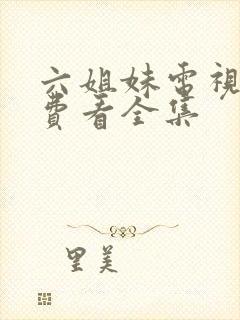 六姐妹電視
費看全集
里美